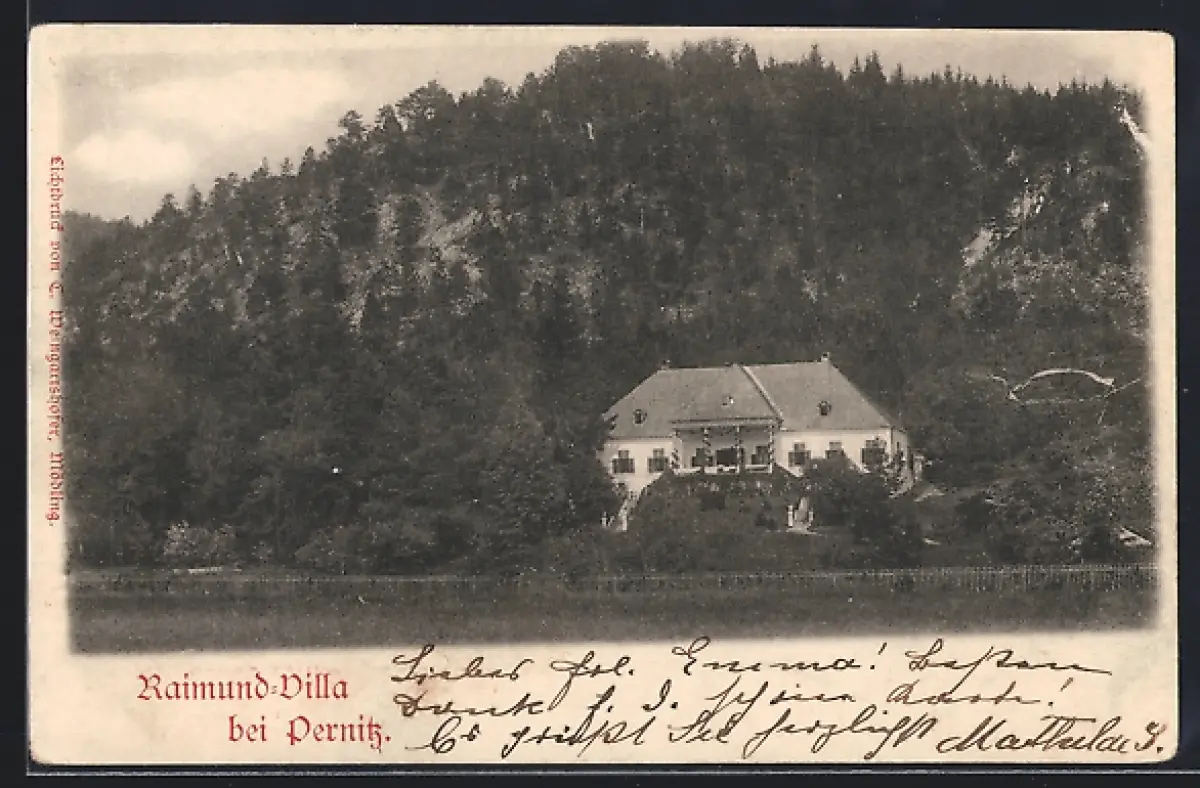 Lichtdruck von C. Wengartshofer, Mödling.
Raimund-Villa
bei Pernitz.
Liebes Frl. Emma! Besten
Dank f. I. schöne Karte!
Es grüßt Sie herzlichst Mathilde